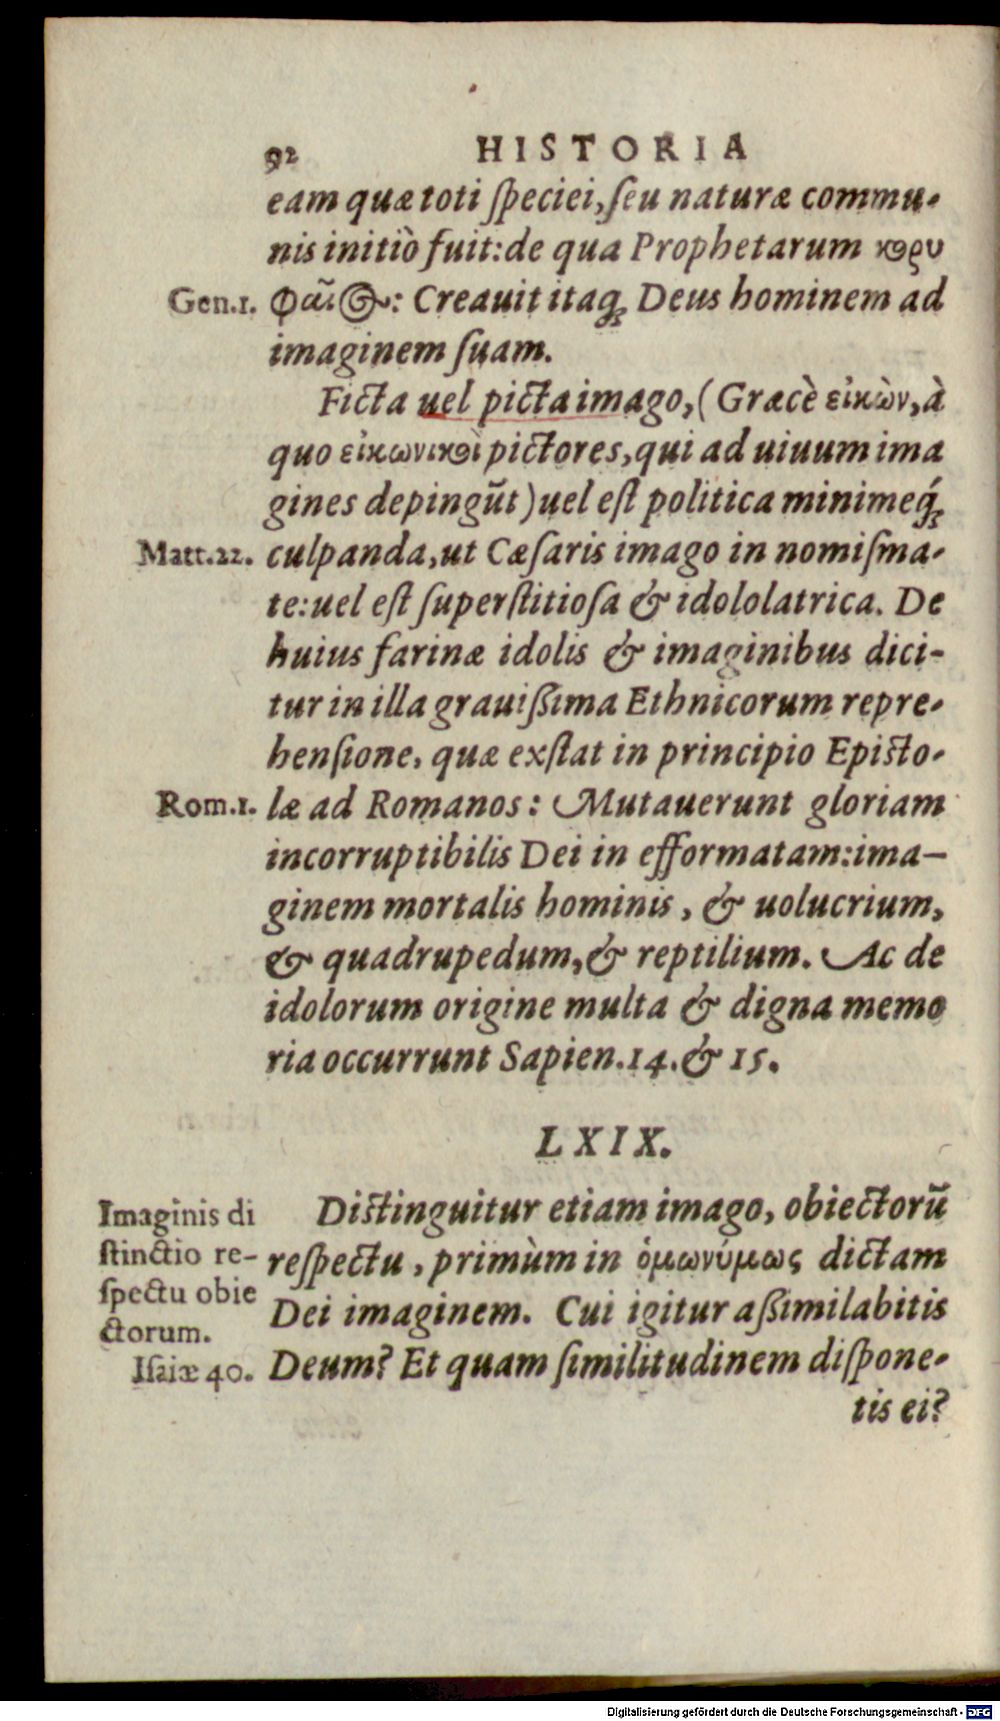 92 HISTORIA
eam quæ toti ſpeciei, ſeu naturæ commu-
nis initiò fuit: de qua Prophetarum κορυ
Gen.1. φαῖος: Creauit itaq́; Deus hominem ad
imaginem ſuam.
Ficta uel picta imago, (Græcè εἰκὼν, à
quo εἰκωνικοὶ pictores, qui ad uiuum ima
gines depingūt) uel eſt politica minimeq́;
Matt.22. culpanda, ut Cæſaris imago in nomiſma-
te: uel eſt ſuperſtitioſa & idololatrica. De
huius farinæ idolis & imaginibus dici-
tur in illa grauiſſima Ethnicorum repre-
henſione, quæ exſtat in principio Epiſto-
Rom.1. læ ad Romanos: Mutauerunt gloriam
incorruptibilis Dei in efformatam: ima-
ginem mortalis hominis, & uolucrium,
& quadrupedum, & reptilium. Ac de
idolorum origine multa & digna memo
ria occurrunt Sapien.14. & 15.
LXIX.
Imaginis di
ſtinctio re-
ſpectu obie
ctorum.
Iſaiæ 40.
Diſtinguitur etiam imago, obiectorū
reſpectu, primùm in ὁμωνύμως dictam
Dei imaginem. Cui igitur aſſimilabitis
Deum? Et quam ſimilitudinem diſpone-
tis ei?
Digitalisierung gefördert durch die Deutsche Forschungsgemeinschaft - DFG